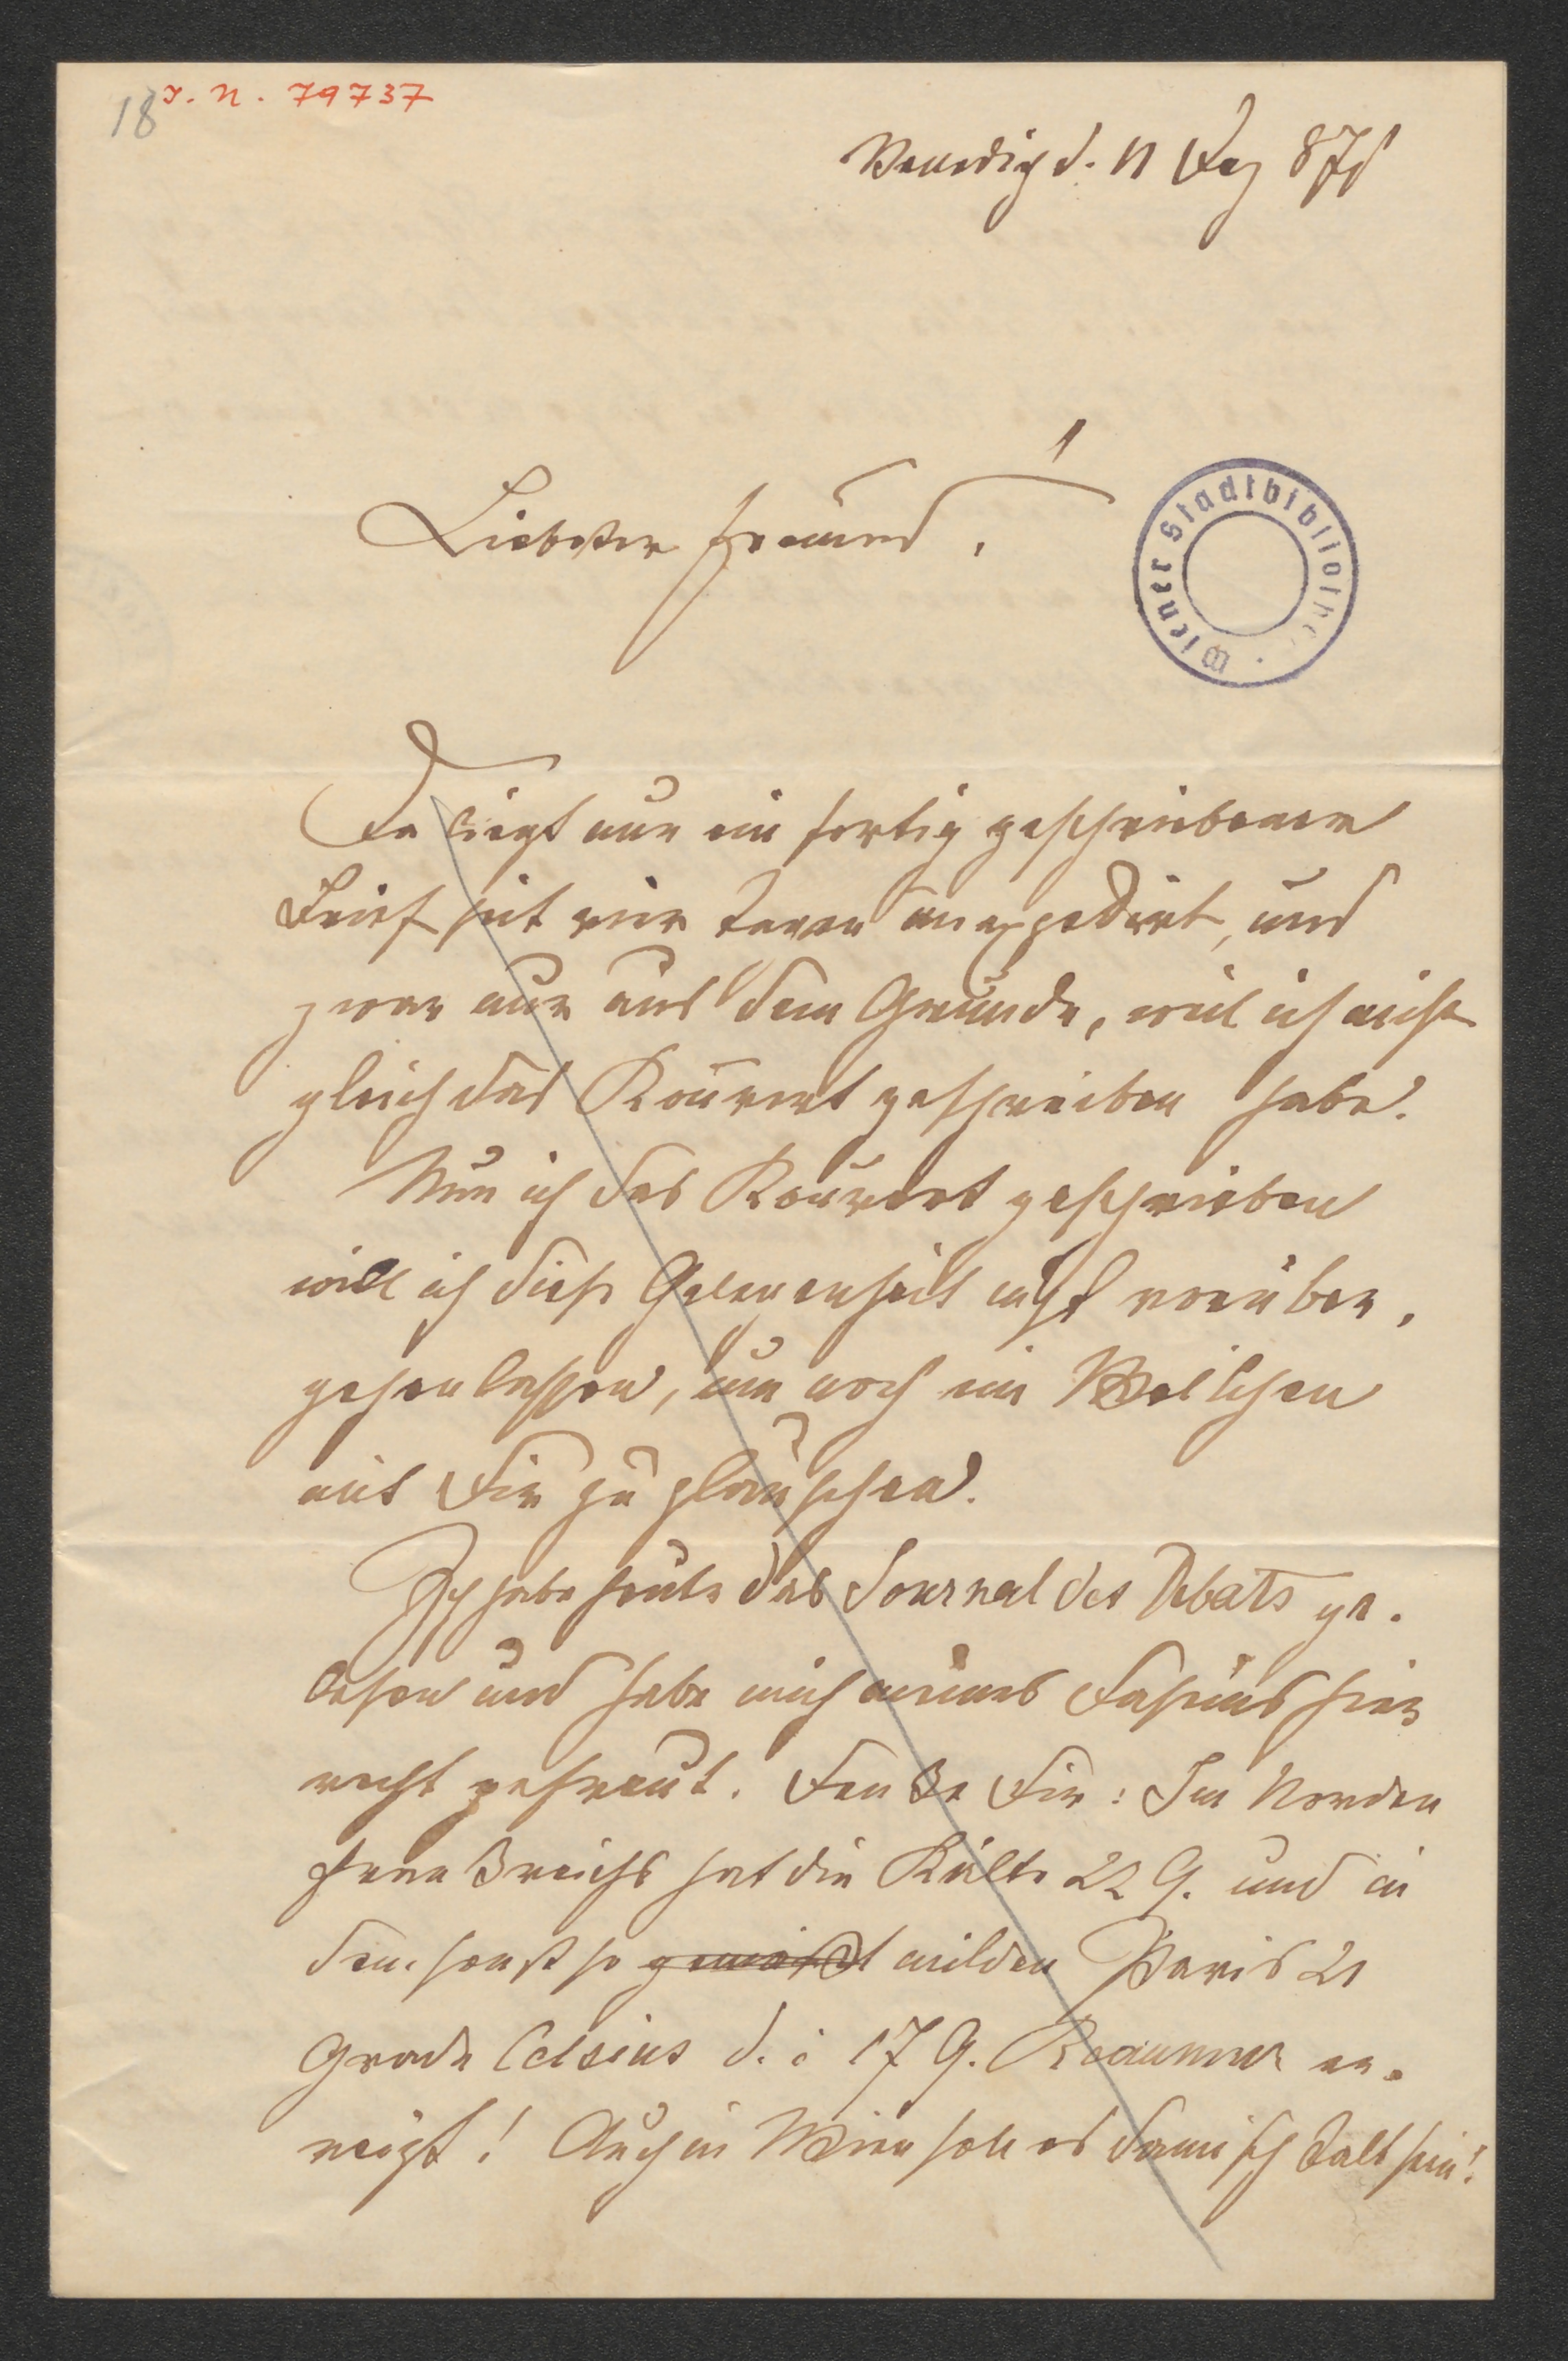 18
I. N. 79737
Venedig d. 11 Dez 871
Liebster Freund!
Wiener Stadtbibliothek
Da liegt nun ein fertig geschriebener
Brief seit vier Tagen unexpedirt, und
zwar nur aus dem Grunde, weil ich nicht
gleich das Kouvert geschrieben habe.
Nun ich das Kouvert geschrieben
will ich diese Gelegenheit nicht vorüber,
gehen lassen, um noch ein Weilchen
mit Dir zu plauschen.
Ich habe heute das Journal des Debats ge-
lesen und habe mich meines Daseins hier
recht gefreut. Denke Dir: Im Norden
Frankreichs hat die Kälte 22 G. und in
dem sonst so milden Paris 21
Grade Celsius d. i 17 G. Reaumur er-
reicht! Auch in Wien soll es damisch kalt sein!